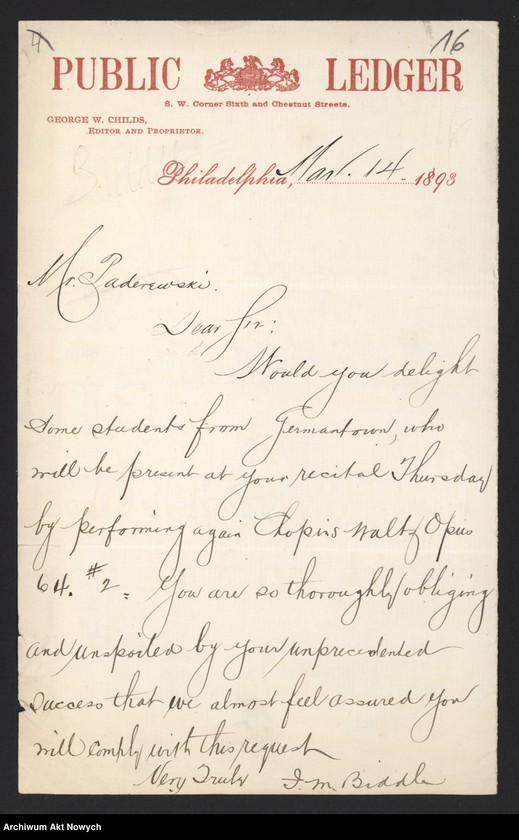 4
16
PUBLIC LEDGER
S. W. Corner Sixth and Chestnut Streets.
GEORGE W. CHILDS,
EDITOR AND PROPRIETOR.
Philadelphia, Mar. 14. 1893
Mr. Paderewski.
Dear Sir:
Would you delight
Some students from Germantown, who
will be present at your recital Thursday
by performing again Chopins Waltz Opus
64. #2. You are so thoroughly obliging
and unspoiled by your unprecedented
success that we almost feel assured you
will comply with this request
Very Truly
I. M. Biddle
Archiwum Akt Nowych